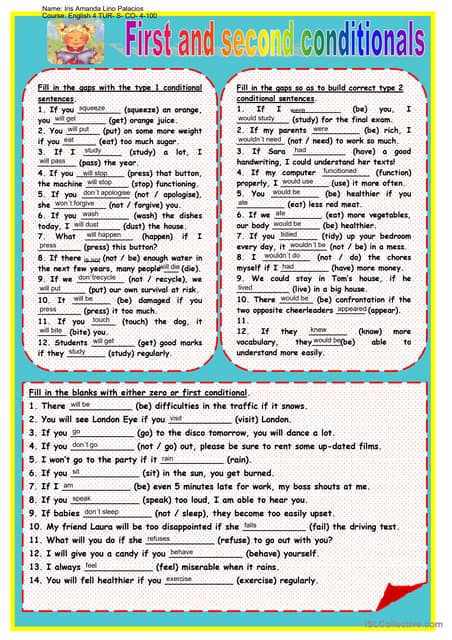 Name: Iris Amanda Lino Palacios
Course: English 4 TUR- S- CO- 4-100
First and second conditionals
Fill in the gaps with the type 1 conditional
sentences.
1. If you squeeze (squeeze) an orange,
you will get (get) orange juice.
2. You will put (put) on some more weight
if you eat (eat) too much sugar.
3. If I study (study) a lot, I
will pass (pass) the year.
4. If you will stop (press) that button,
the machine will stop (stop) functioning.
5. If you don´t apologise (not / apologise),
she won´t forgive (not / forgive) you.
6. If you wash (wash) the dishes
today, I will dust (dust) the house.
7. What will happen (happen) if I
press (press) this button?
8. If there is not (not / be) enough water in
the next few years, many people will die (die).
9. If we don´trecycle (not / recycle), we
will put (put) our own survival at risk.
10. It will be (be) damaged if you
press (press) it too much.
11. If you touch (touch) the dog, it
will bite (bite) you.
12. Students will get (get) good marks
if they study (study) regularly.
Fill in the gaps so as to build correct type 2
conditional sentences.
1. If I were (be) you, I
would study (study) for the final exam.
2. If my parents were (be) rich, I
wouldn´t need (not / need) to work so much.
3. If Sara had (have) a good
handwriting, I could understand her texts!
4. If my computer funcitioned (function)
properly, I would use (use) it more often.
5. You would be (be) healthier if you
ate (eat) less red meat.
6. If we ate (eat) more vegetables,
our body would be (be) healthier.
7. If you tidied (tidy) up your bedroom
every day, it wouldn´t be (not / be) in a mess.
8. I wouldn´t do (not / do) the chores
myself if I had (have) more money.
9. We could stay in Tom's house, if he
lived (live) in a big house.
10. There would be (be) confrontation if the
two opposite cheerleaders appeared (appear).
11.
12. If they knew (know) more
vocabulary, they would be (be) able to
understand more easily.
Fill in the blanks with either zero or first conditional.
1. There will be (be) difficulties in the traffic if it snows.
2. You will see London Eye if you visit (visit) London.
3. If you go (go) to the disco tomorrow, you will dance a lot.
4. If you don´t go (not / go) out, please be sure to rent some up-dated films.
5. I won't go to the party if it rain (rain).
6. If you sit (sit) in the sun, you get burned.
7. If I am (be) even 5 minutes late for work, my boss shouts at me.
8. If you speak (speak) too loud, I am able to hear you.
9. If babies don´t sleep (not / sleep), they become too easily upset.
10. My friend Laura will be too disappointed if she fails (fail) the driving test.
11. What will you do if she refuses (refuse) to go out with you?
12. I will give you a candy if you behave (behave) yourself.
13. I always feel (feel) miserable when it rains.
14. You will fell healthier if you exercise (exercise) regularly.
iSLCollective.com